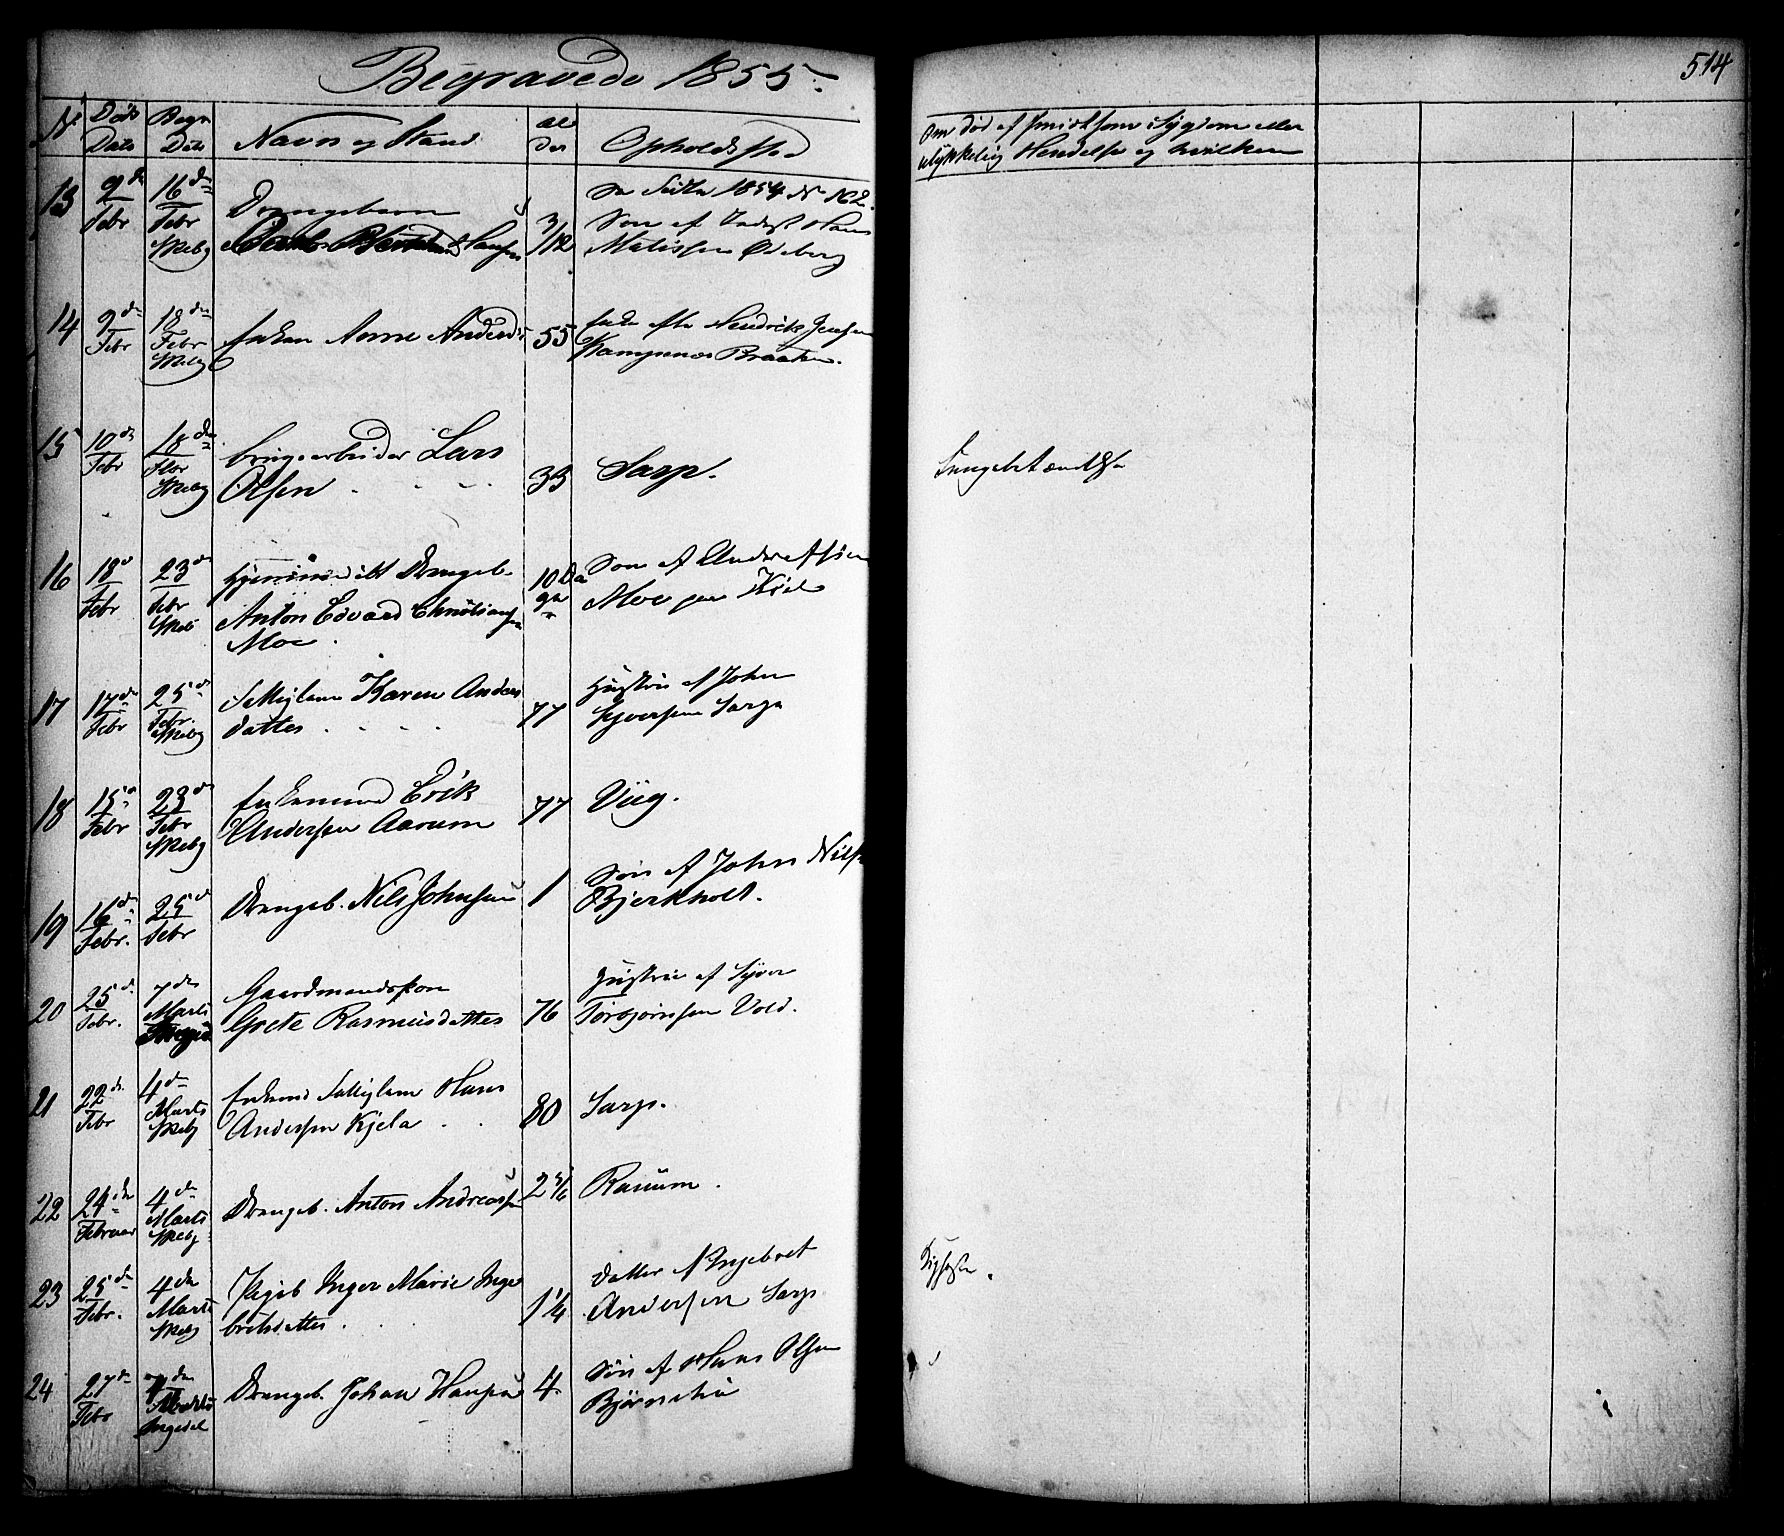 Begravede 1855.
514
Nr. Døds Date Begr Date Navn og Stand Al der Opholdsted
Om død af smitsom Sygdom eller
ulykkelig Hendelse og hvilken
13 9de Febr 16de Febr Skieb Drengebarn Hansen 3/12
se Sidste 1854 N 162.
Son af Hans
Matissen Ødeberg
14 9de Febr 18de Febr Enken Anne Andersd 55 Enke efter Hendrik Jensen
Kampenes Braaten.
15 10de Febr 18de Febr brugsarbeider Lars
Olsen 33 Sarp. Lungebetændelse
16 18d Febr 23de Febr Hjemmedøbt Drengeb.
Anton Edvard Christiansen
Moe 10 Da
ge
Son af
Moe
17 17de Febr 25de Febr Karen Anders
datter 77 Hustru af John
Sarp
18 15d Febr 23de Febr Enkemand Erik
Andersen Aarum 77 Viig.
19 16de Febr. 25d Febr Drengeb. Nils Johnsen 1 Søn af John Nils
Bjerkholt.
20 25d Febr. 7de Marts Gaardmandskone
Grete Rasmusdatter 76 Hustru af Syver
Torbjørnsen Vold.
21 22de Febr 4de Marts Enkemd Hans
Andersen Kjela 80 Sarp.
22 24de Februar 4de Marts Drengeb. Anton Andreassen 2 5/6 Rauum.
23 25de Febr. 4de Marts Pigeb Inger Marie Inge
bretsdatter 1 1/4 datter af Ingebret
Andersen Sarp
24 27de Febr 7de Marts Ingedal Drengeb. Johan Hansen 4 Søn af Hans Olsen